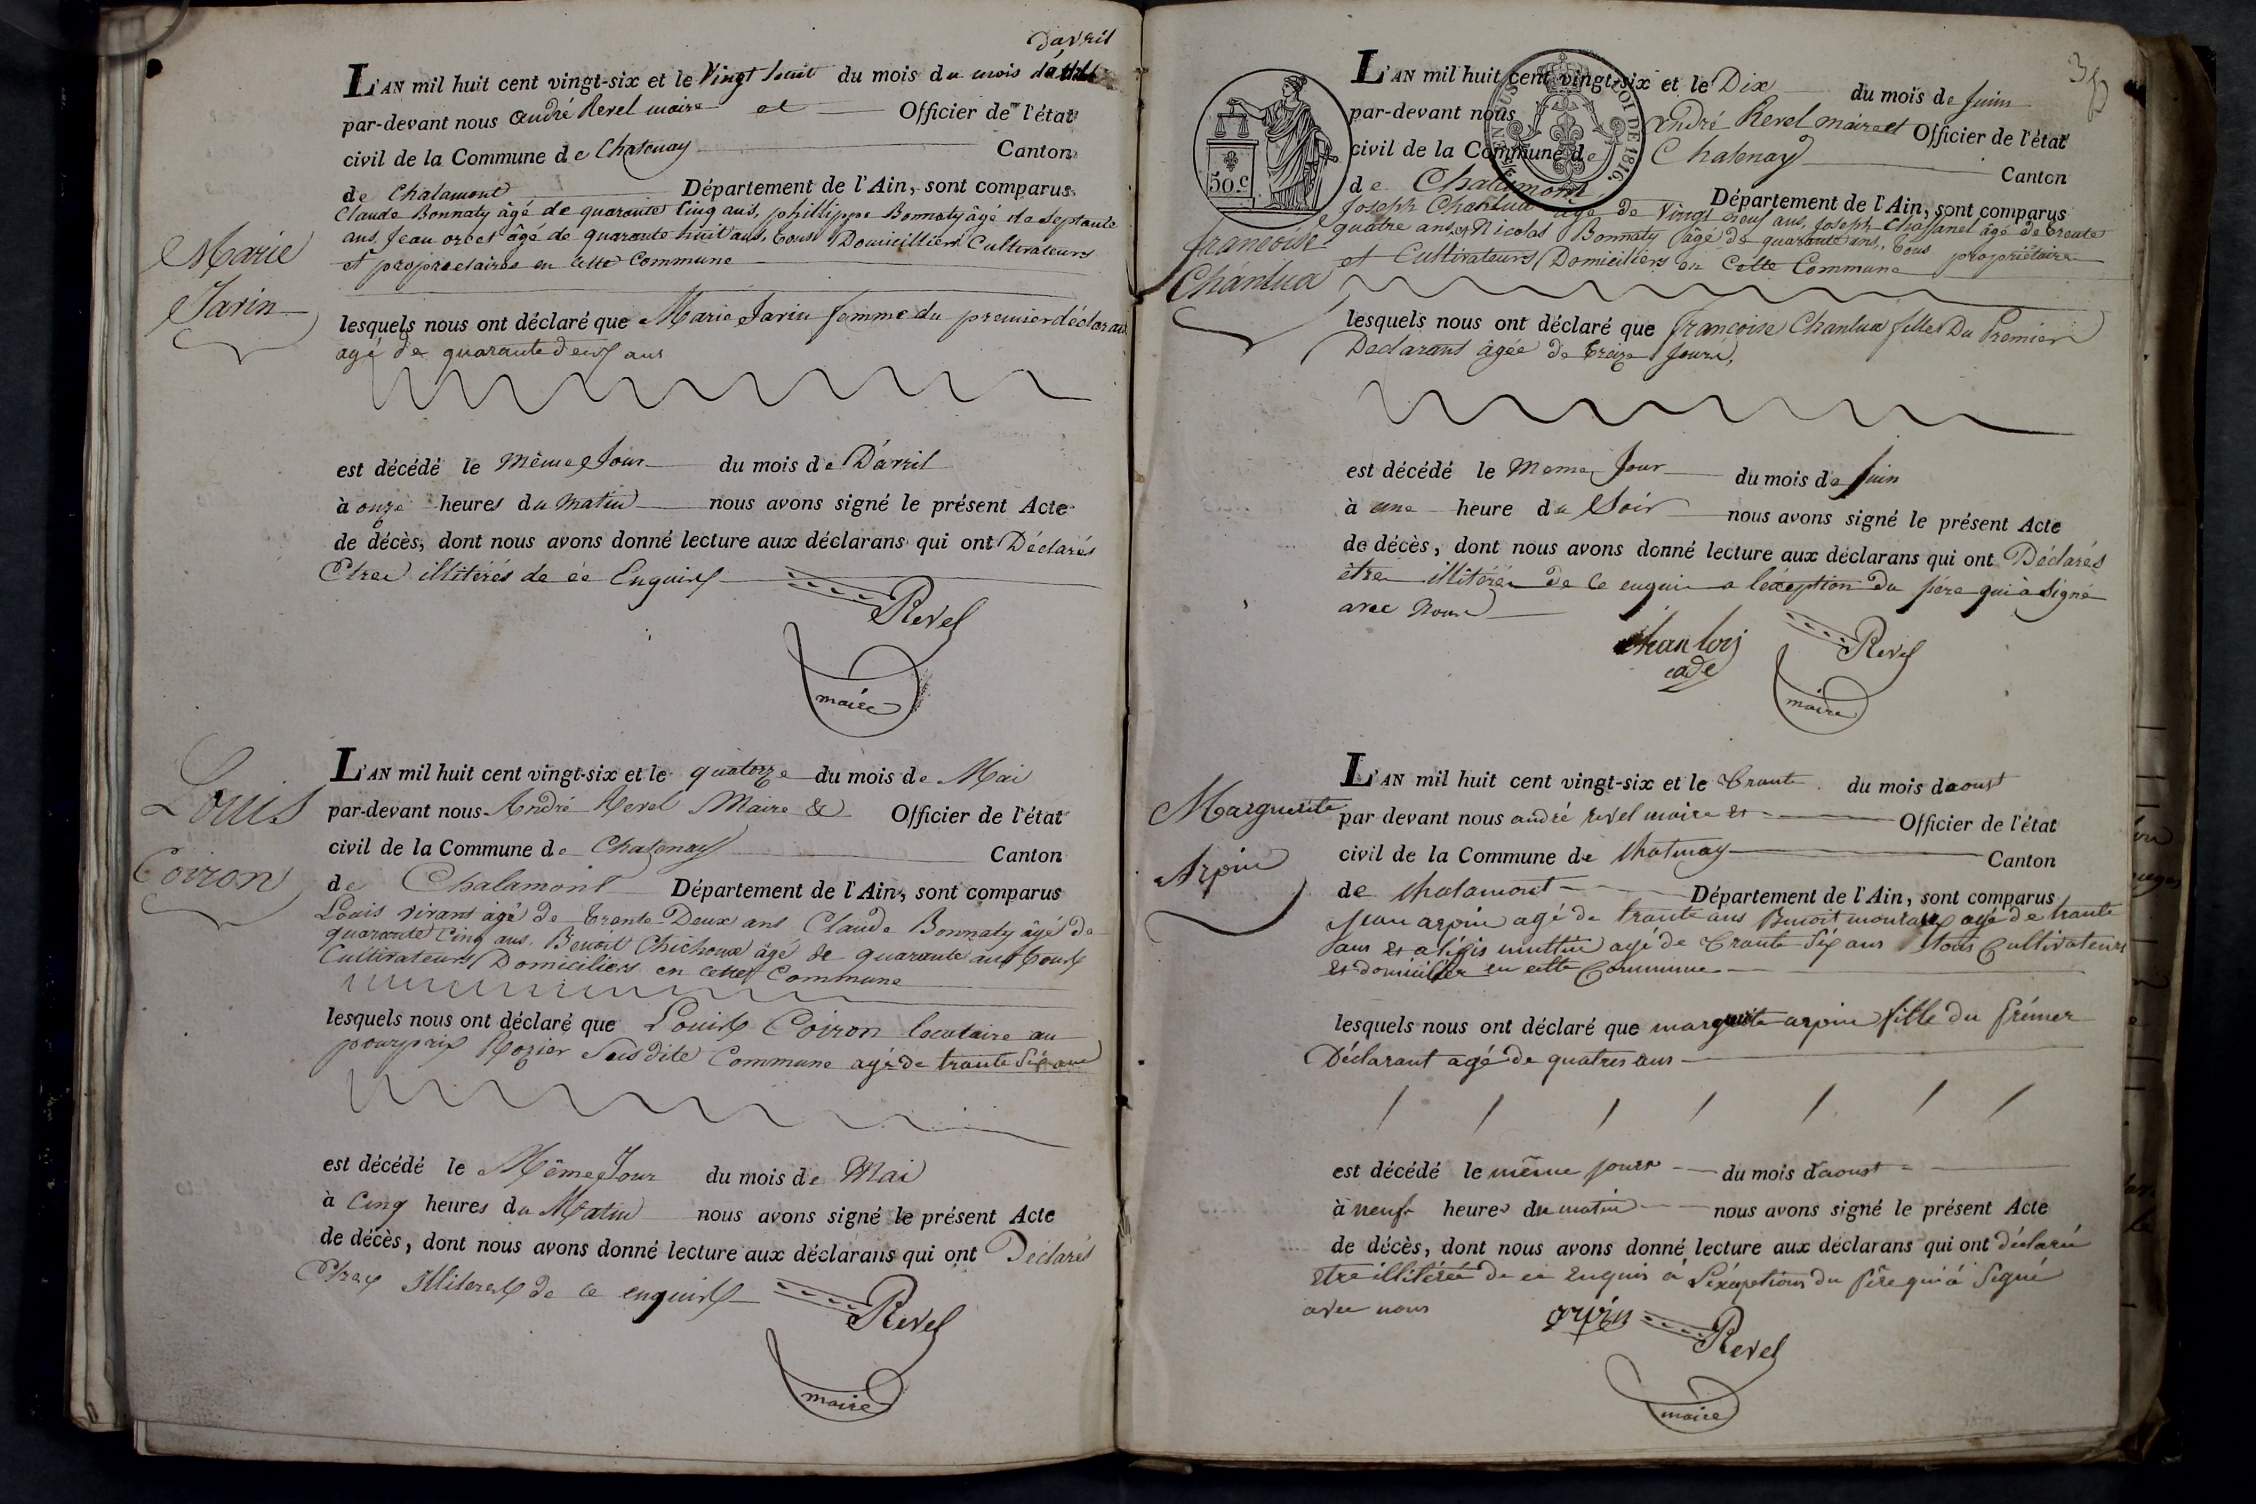 Davril
L'AN mil huit cent vingt-six et le Vingt huit du mois du mois d'
par-devant nous André Revel maire et Officier de l'état
civil de la Commune de Chatenay Canton
de Chalamont Département de l'Ain, sont comparus
Claude Bonnaty âgé de quarante Cinq ans, phillippe Bonnaty âgé de Septante
ans, Jean orcet âgé de quarante huit ans, tous Domicilliers Cultivateurs
et proprietaires en Cette Commune
Marie
Jarin
lesquels nous ont déclaré que Marie Jarin femme du premier déclarant
agé de quarante deux ans
est décédé le Même Jour du mois de D'avril
à onze heures du matin nous avons signé le présent Acte
de décès, dont nous avons donné lecture aux déclarans qui ont Déclarés
Etre illitérés de ce Enquis
Revel
maire
L'AN mil huit cent vingt-six et le quatorze du mois de Mai
par-devant nous André Revel Maire & Officier de l'état
civil de la Commune de Chatenay Canton
de Chalamont Département de l'Ain, sont comparus
Louis
Coiron
Louis vivant agé de trente Deux ans Claude Bonnaty âgé de
quarante Cinq ans. Benoit Chichoux âgé de quarante ans tous
Cultivateurs Domiciliers en cette Commune
lesquels nous ont déclaré que Louis Coiron locataire au
pourprix Rozier Susdite Commune agé de trante Six ans
est décédé le Même Jour du mois de Mai
à Cinq heures du Matin nous avons signé le présent Acte
de décès, dont nous avons donné lecture aux déclarans qui ont Déclarés
Etre Illiteres de ce enquis
Revel
maire
L'AN mil huit cent vingt-six et le Dix du mois de Juin
par-devant nous André Revel maire et Officier de l'état
civil de la Commune de Chatenay Canton
de Chalamont Département de l'Ain, sont comparus
50 C
LOI DE 1816
Joseph Chanlua âgé de Vingt neuf ans, Joseph Chassanel agé de trente
quatre ans, et Nicolas Bonnaty âgé de quarante ans, tous propriétaires
et Cultivateurs Domiciliers en Cette Commune
francoise
Chanlua
lesquels nous ont déclaré que françoise Chanlua fille Du Premier
Declarant âgée de treize Jours,
est décédé le Meme Jour du mois de Juin
à une heure du Soir nous avons signé le présent Acte
de décès, dont nous avons donné lecture aux déclarans qui ont Déclarés
être illitérés de Ce enquis a l'exception du père qui à Signé
avec Nous
Revel
maire
L'AN mil huit cent vingt-six et le trante du mois daoust
par devant nous andré revel maire et Officier de l'état
civil de la Commune de Chatenay Canton
de chalamont Département de l'Ain, sont comparus
Marguerite
Arpin
Jean arpin agé de trante ans Benoit agé de trante
ans et agé de trante Six ans tous Cultivateurs
et domicilier en cette Commune
lesquels nous ont déclaré que arpin fille du prémer
Déclarant agé de quatres ans
est décédé le même jour du mois d'aoust
à neuf heures du matin nous avons signé le présent Acte
de décès, dont nous avons donné lecture aux déclarans qui ont déclaré
etre illitéré de ce enquis à l'éxeption du pêre qui à Signé
avec nous
arpin
Revel
maire